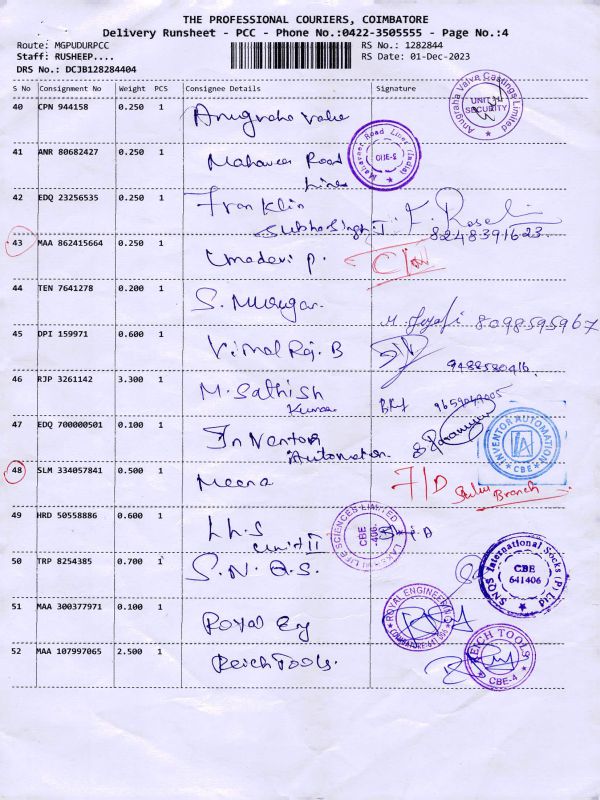 THE PROFESSIONAL COURIERS, COIMBATORE
Delivery Runsheet - PCC - Phone No.:0422-3505555 - Page No.:4
Route: MGPUDURPCC RS No.: 1282844
Staff: RUSHEEP.... RS Date: 01-Dec-2023
DRS No.: DCJB128284404
S No Consignment No Weight PCS Consignee Details Signature
40 CPN 944158 0.250 1 Anugraha Valve
Anugraha Valve Castings Limited
UNIT
SECURITY
41 ANR 80682427 0.250 1 Mahaveer Road
Lines
Mahaveer Road Lines (India)
CHE-S
42 EDQ 23256535 0.250 1 Franklin
Subha Singh J.
8248391623
43 MAA 862415664 0.250 1 Umadevi P.
44 TEN 7641278 0.200 1 S. Murugan
M. Jeyafi 8098595967
45 DPI 159971 0.600 1 Vimal Raj. B
9488580416
46 RJP 3261142 3.300 1 M. Sathish
Kumar
47 EDQ 700000501 0.100 1 Inventor
Automation
INVENTOR AUTOMATION
IA
CBE
48 SLM 334057841 0.500 1 Meena F/D
Branch
49 HRD 50558886 0.600 1 L.L.S
Unit II
LIFE SCIENCES LIMITED
CBE
-406-
50 TRP 8254385 0.700 1 S.N.Q.S.
SNQS International Socks (P) Ltd
CBE
641406
51 MAA 300377971 0.100 1 Royal Eng
ROYAL ENGINEERING
COIMBATORE
52 MAA 107997065 2.500 1 Reich Tools.
REICH TOOLS
CBE-4